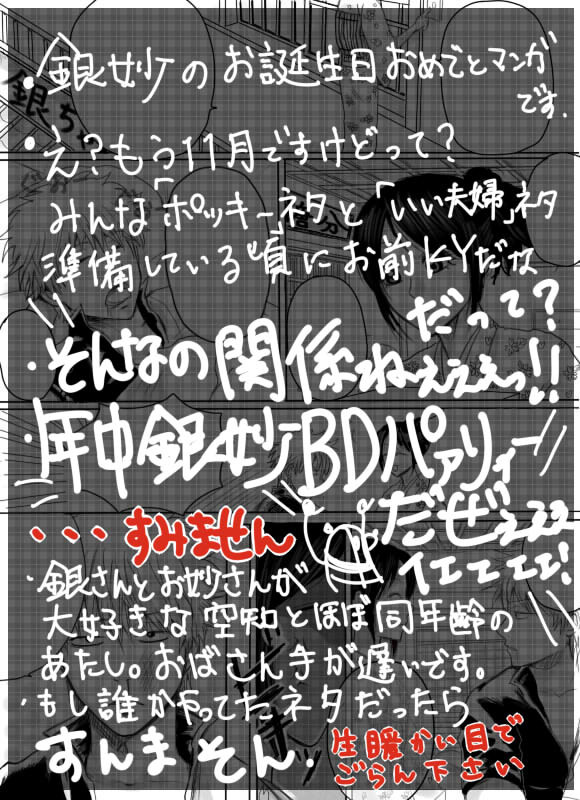 ・銀妙のお誕生日おめでとマンガ
です.
・え?もう11月ですけどって?
みんな「ポッキーネタと「いい夫婦」ネタ
準備している頃にお前KYだな
だって?
・そんなの関係ねぇぇぇっ!!
・年中銀妙BDパァリィー
だぜぇぇぇ
イエエエエ!
・・・すみません
・銀さんとお妙さんが
大好きな空知とほぼ同年齢の
あたし。おばさん手が遅いです。
・もし誰かやってたネタだったら
すんまそん.
生暖かい目で
ごらん下さい
銀ち
糖分